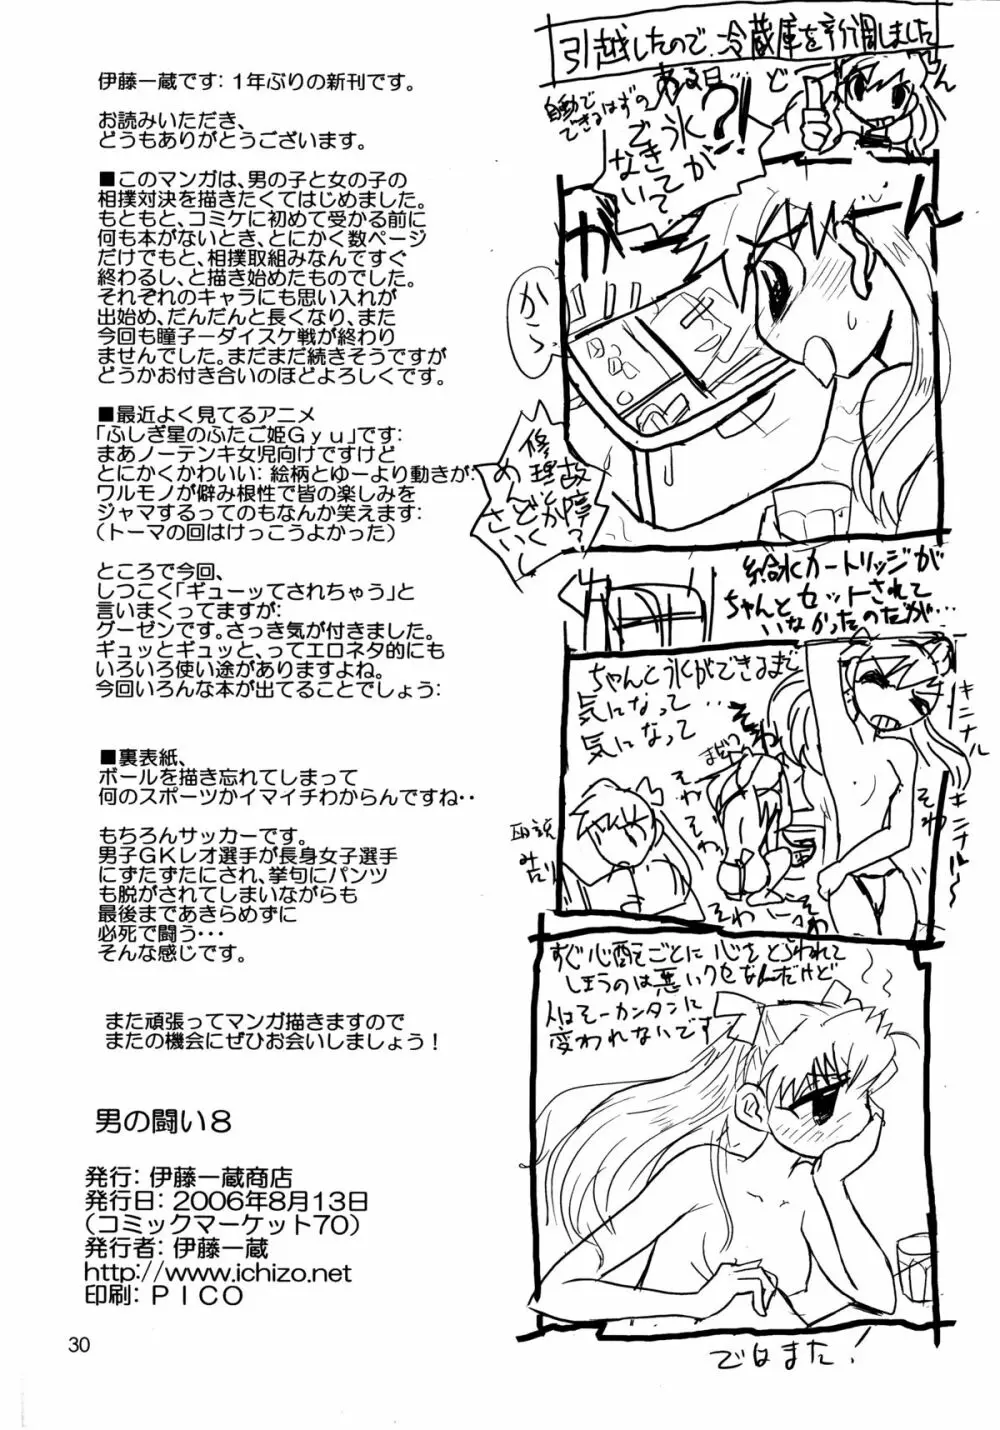 伊藤一蔵です：１年ぶりの新刊です。
お読みいただき、
どうもありがとうございます。
■このマンガは、男の子と女の子の
相撲対決を描きたくてはじめました。
もともと、コミケに初めて受かる前に
何も本がないとき、とにかく数ページ
だけでもと、相撲取組みなんてすぐ
終わるし、と描き始めたものでした。
それぞれのキャラにも思い入れが
出始め、だんだんと長くなり、また
今回も瞳子ーダイスケ戦が終わり
ませんでした。まだまだ続きそうですが
どうかお付き合いのほどよろしくです。
■最近よく見てるアニメ
「ふしぎ星のふたご姫Ｇｙｕ」です：
まあノーテンキ女児向けですけど
とにかくかわいい：絵柄とゆーより動きが：
ワルモノが僻み根性で皆の楽しみを
ジャマするってのもなんか笑えます：
（トーマの回はけっこうよかった）
ところで今回、
しつこく「ギューッてされちゃう」と
言いまくってますが：
グーゼンです。さっき気が付きました。
ギュッとギュッと、ってエロネタ的にも
いろいろ使い途がありますよね。
今回いろんな本が出てることでしょう：
■裏表紙、
ボールを描き忘れてしまって
何のスポーツかイマイチわからんですね・・
もちろんサッカーです。
男子ＧＫレオ選手が長身女子選手
にずたずたにされ、挙句にパンツ
も脱がされてしまいながらも
最後まであきらめずに
必死で闘う・・・
そんな感じです。
また頑張ってマンガ描きますので
またの機会にぜひお会いしましょう！
男の闘い８
発行：伊藤一蔵商店
発行日：２００６年８月１３日
（コミックマーケット７０）
発行者：伊藤一蔵
http://www.ichizo.net
印刷：ＰＩＣＯ
30
引越したので、冷蔵庫を新調しました
どーん
ある日…
自動で
できるはずの
氷が
できて
ない
て
？！
から
故障？
修理とか
めんどく
さいし
給水カートリッジが
ちゃんとセットされて
いなかったのだが…
ちゃんと氷ができるまで
気になって…
気になって
そわ
そわ
キニナル
キニナル〜
そわ
そわ
すぐ心配ごとに心をとらわれて
しまうのは悪いクセなんだけど
人はそーカンタンに
変われないです
ではまた！